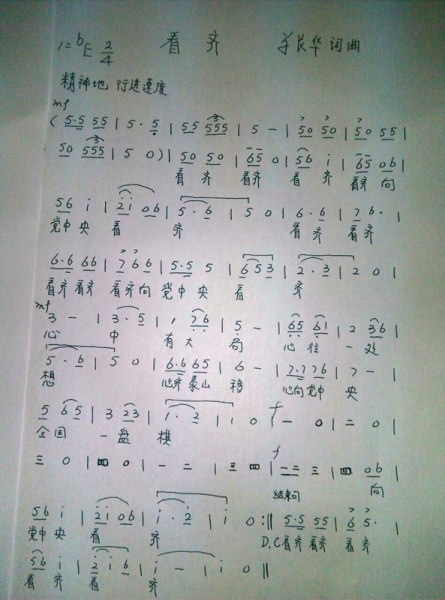 1=bE 2/4 看齐 长华词曲
精神地 行进速度
mf
(5·5 55 | 5· 5 | 55 555 | 5 - | 50 50 | 50 55 |
50 555 | 5 0) | 50 50 | 65 0 | 56 i | 65 0b |
看 齐 看齐 看 齐 看齐 向
56 i | 2i 0b | 5·6 | 5 0 | 6·6 | 7 6· |
党中央 看 齐 看齐 看齐
6·6 66 | 766 | 5·5 5 | 653 | 2·3 | 2 0 |
看齐 看齐 看齐向 党中央 看 齐
mf
3 - | 3·5 | 1, 76 | 5 - | 65 61 | 2 36 |
心 中 有大 局 心往 一处
5·6 | 5 0 | 6·6 65 | 6 - | 7·7 76 | 7 - |
想 心齐泰山 移 心向党中 央
5 65 | 3 23 | 1·2 | 1 0 | 一 0 | 二 0 |
f
全国 一盘 棋
三 0 | 四 0 | 一 - 二 | 三 四 | 一二 三 | 四 0b |
f
结束句 向
56 i | 2i 0b | i·2 | i 0 :‖ 5·5 55 | 65· |
党中 央 看 齐 D.C 看齐 看齐 看齐
56 i | 2 i6 | i - | i 0 ‖
看 齐 看 齐